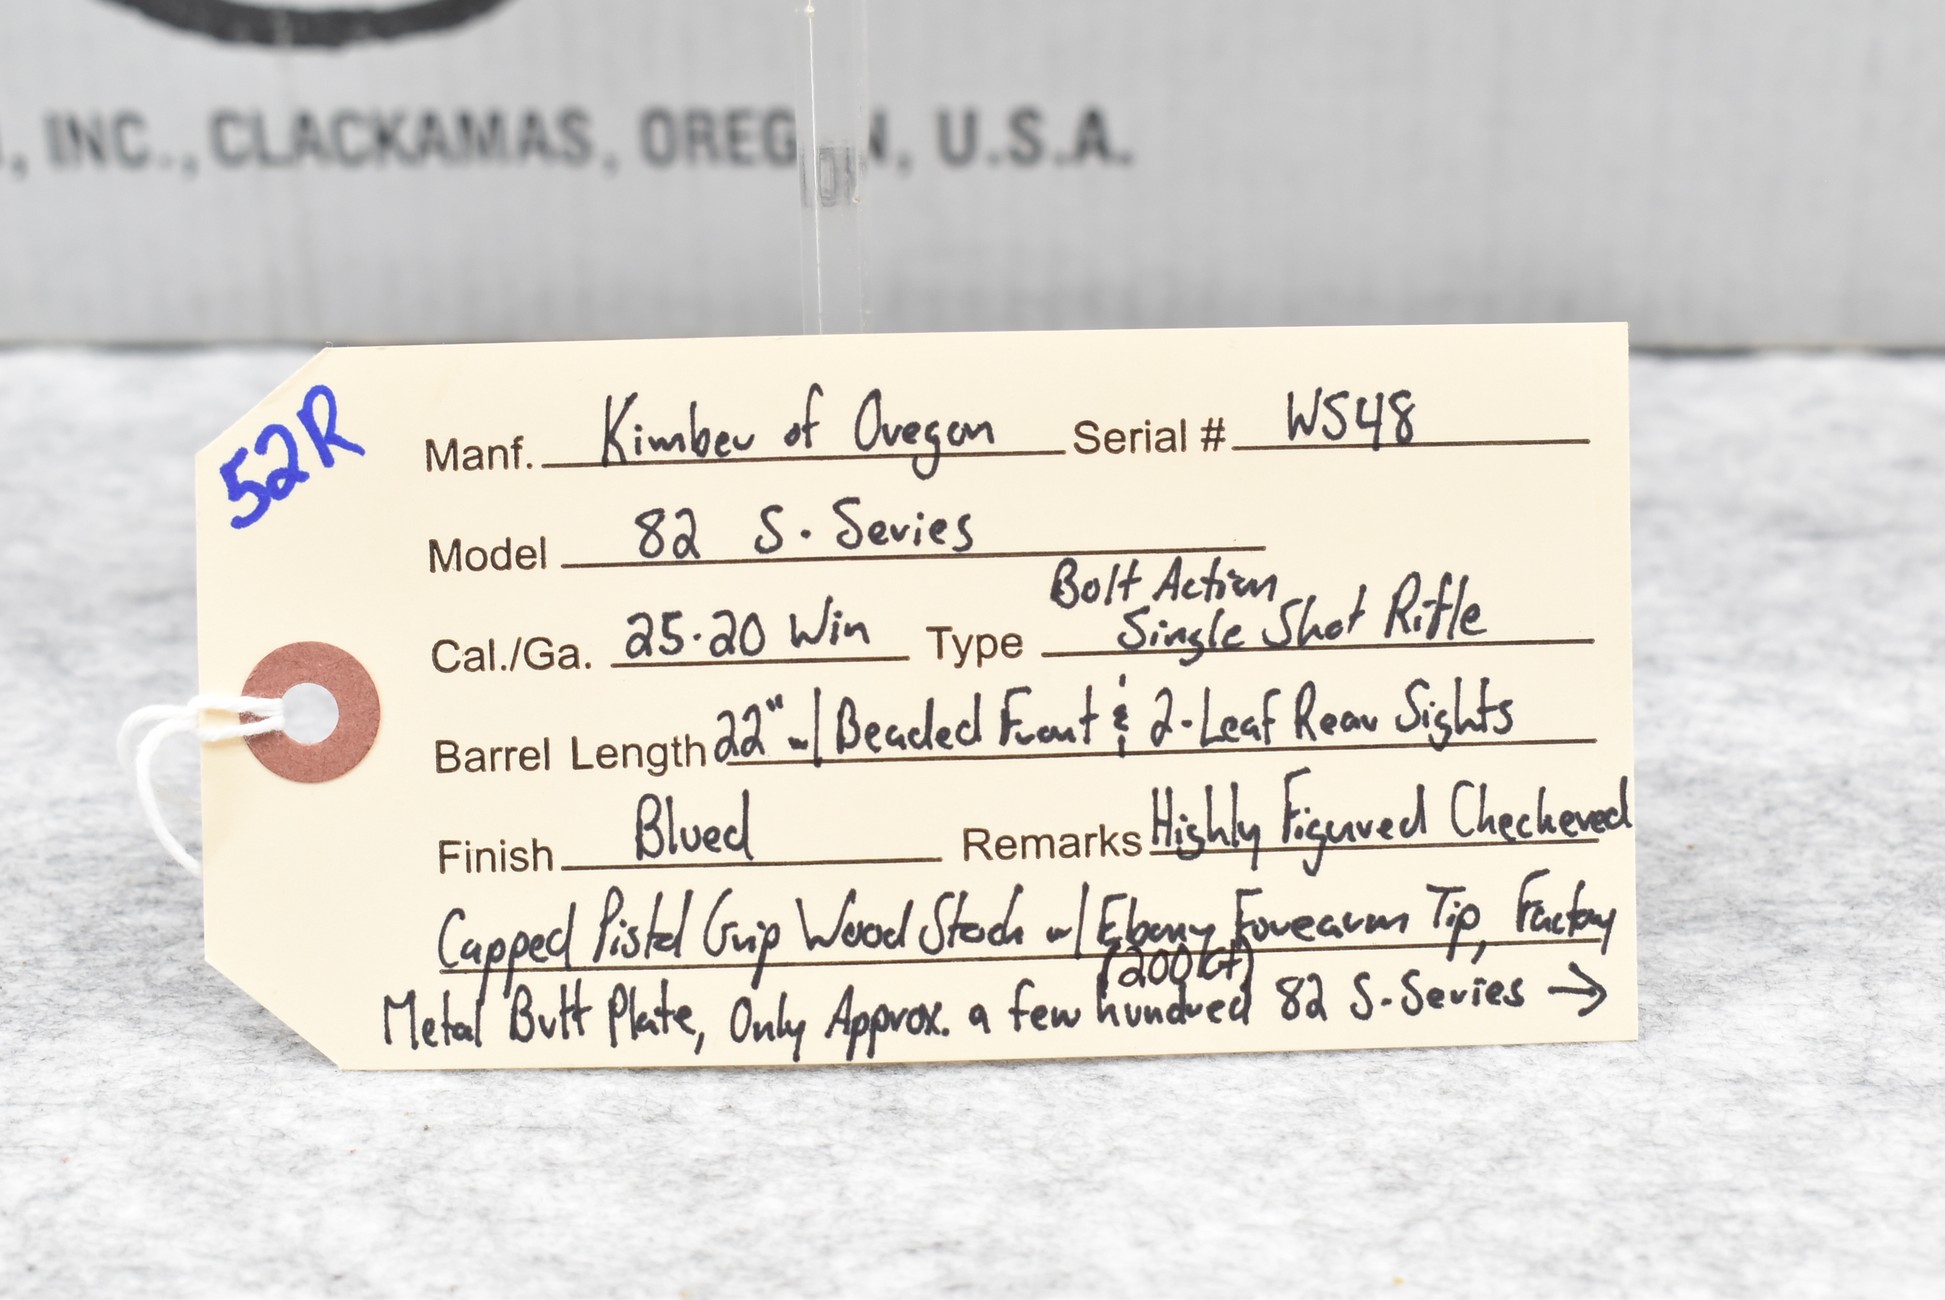 , INC., CLACKAMAS, OREG N, U.S.A.
52R
Manf. Kimber of Oregon Serial # WS48
Model 82 S-Series
Bolt Action
Cal./Ga. 25-20 Win Type Single Shot Rifle
Barrel Length 22" w/ Beaded Front & 2-Leaf Rear Sights
Finish Blued Remarks Highly Figured Checkered
Capped Pistol Grip Wood Stock w/ Ebony Forearm Tip, Factory
(200ct)
Metal Butt Plate, Only Approx. a few hundred 82 S-Series →